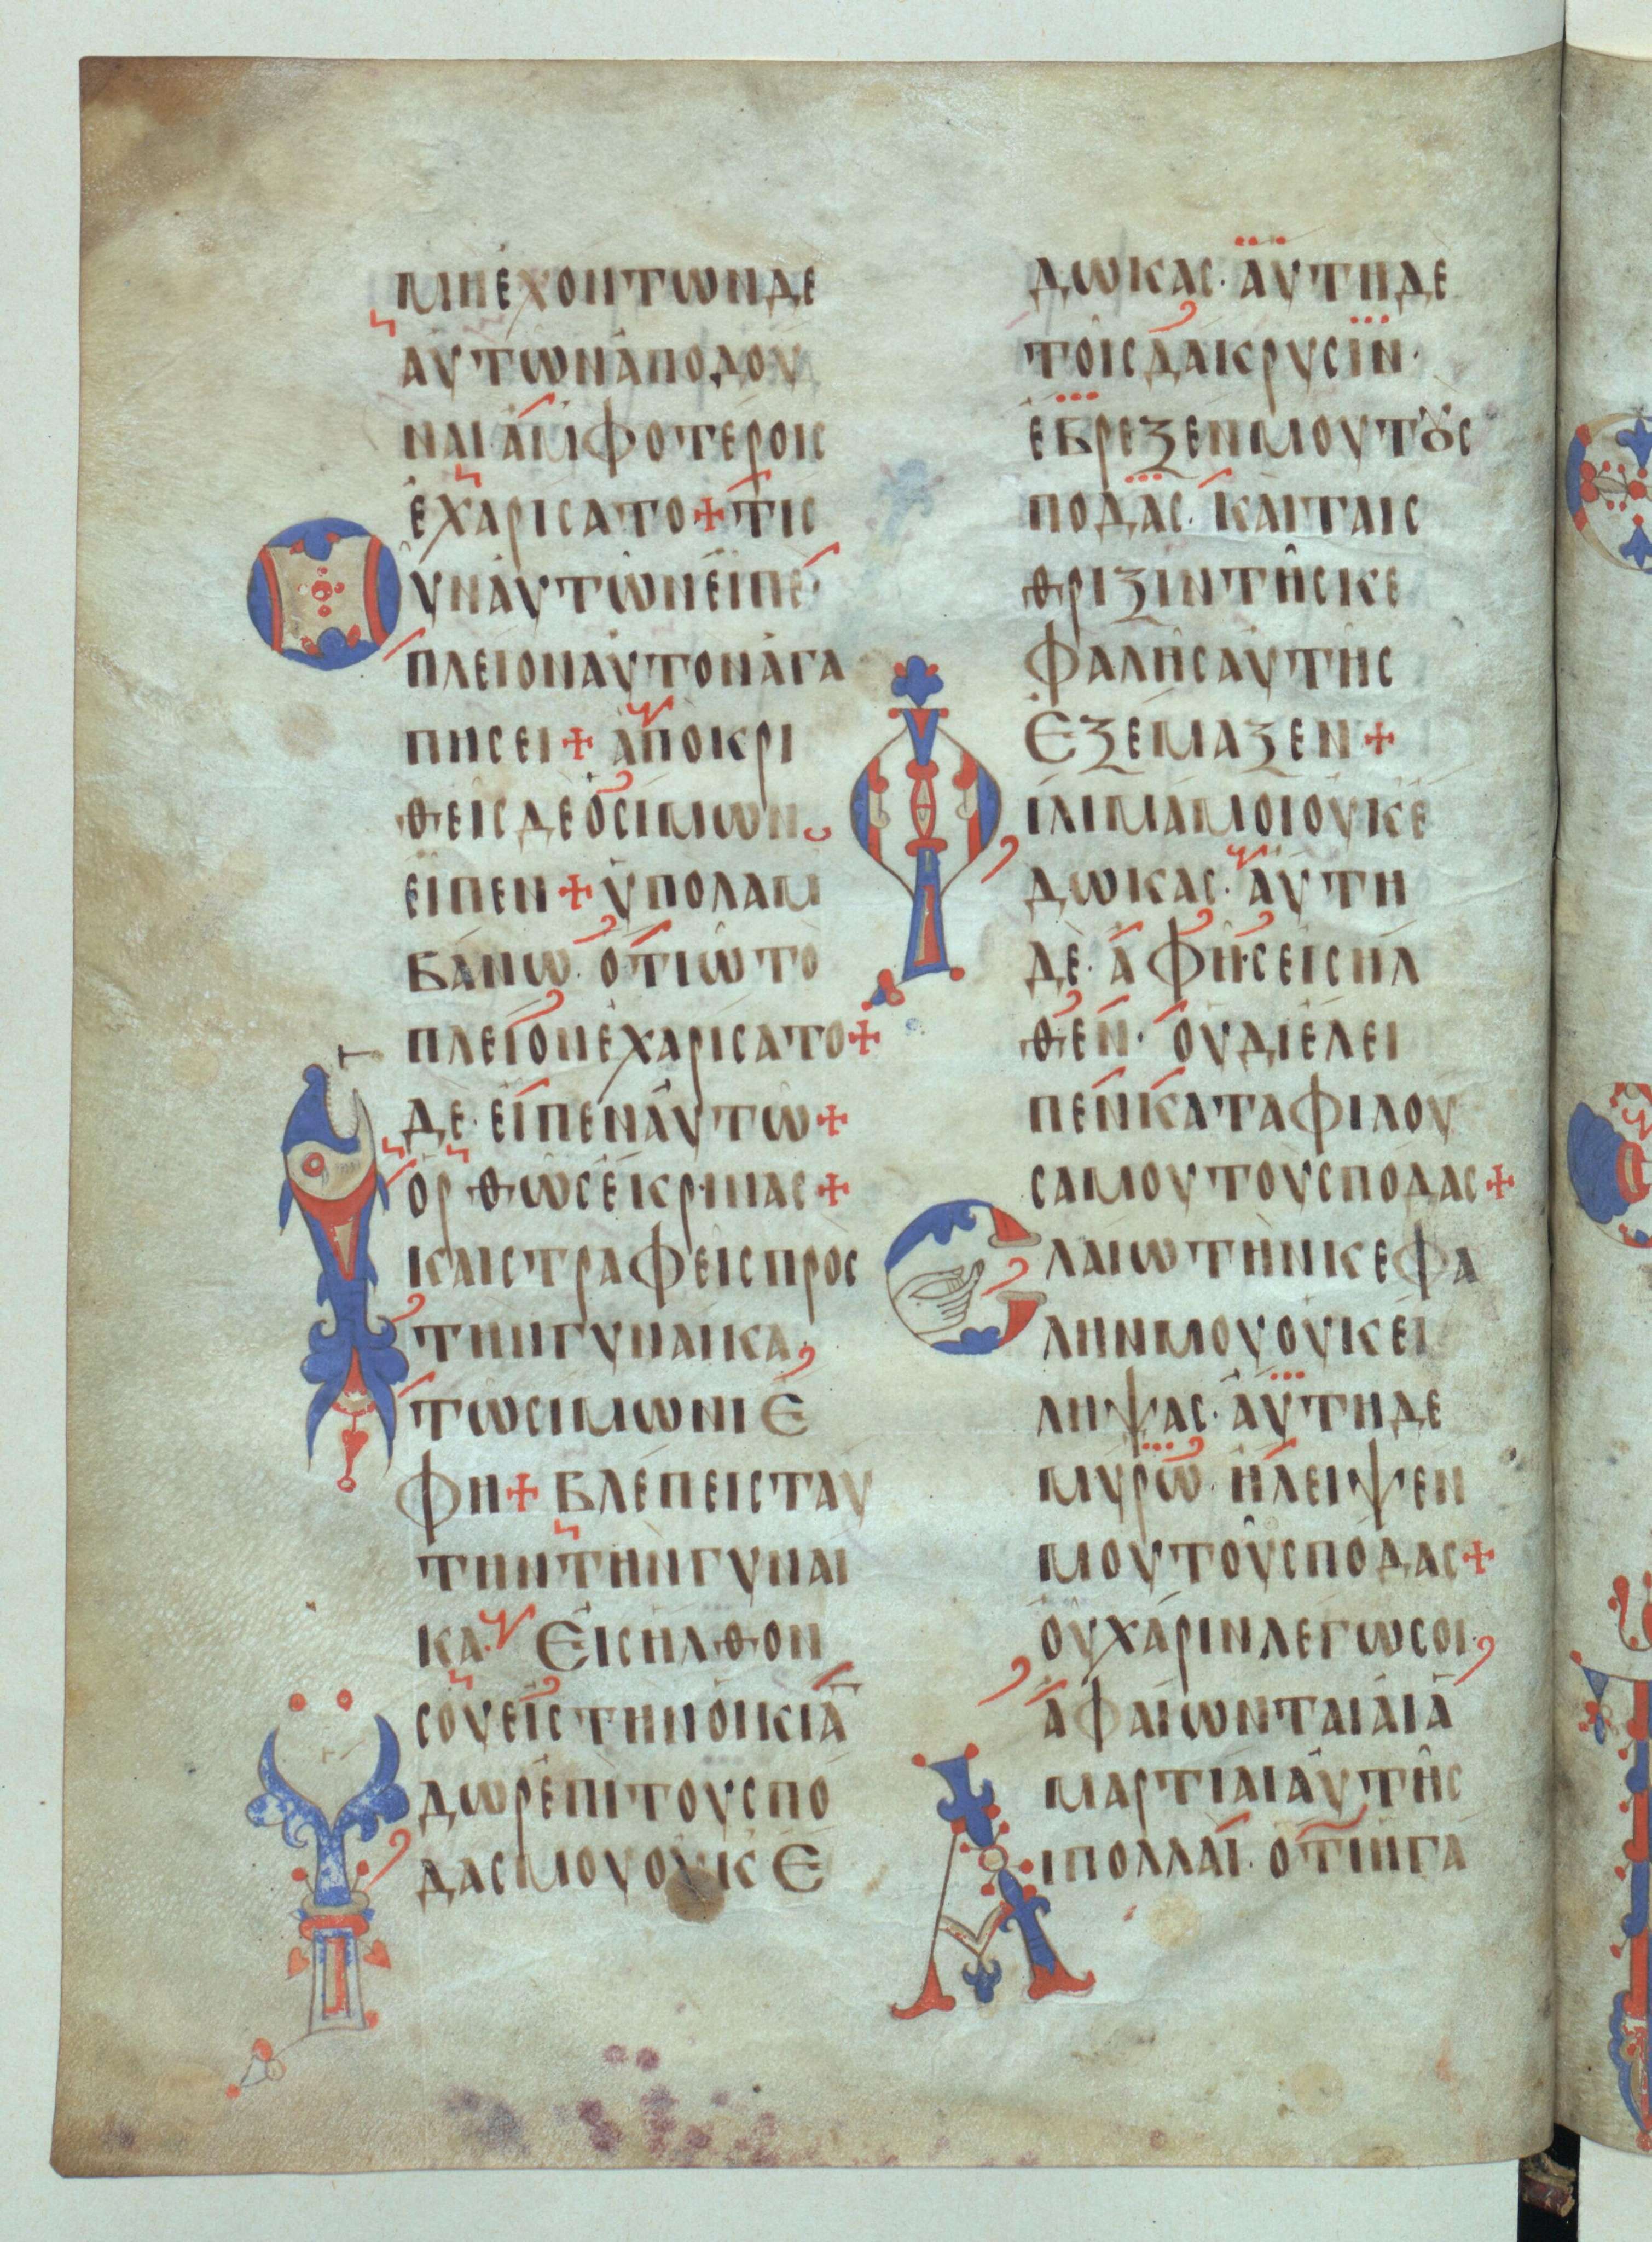 ΜΗ ἘΧΟΝΤΩΝ ΔΕ
ΑΥΤΩΝ ἈΠΟΔΟΥ
ΝΑΙ ἈΜΦΟΤΕΡΟΙϹ
ἘΧΑΡΙϹΑΤΟ + ΤΙϹ
ΟΥΝ ΑΥΤΩΝ ΕΙΠΕ·
ΠΛΕΙΟΝ ΑΥΤΟΝ ΑΓΑ
ΠΗϹΕΙ + ἈΠΟΚΡΙ
ΘΕΙϹ ΔΕ Ὁ ϹΙΜΩΝ
ΕΙΠΕΝ + ΥΠΟΛΑΜ
ΒΑΝΩ· ΟΤΙ Ω ΤΟ
ΠΛΕΙΟΝ ἘΧΑΡΙϹΑΤΟ +
ΔΕ· ΕΙΠΕΝ ΑΥΤΩ +
ΟΡΘΩϹ ΕΚΡΙΝΑϹ +
ΚΑΙ ϹΤΡΑΦΕΙϹ ΠΡΟϹ
ΤΗΝ ΓΥΝΑΙΚΑ,
ΤΩ ϹΙΜΩΝΙ Ε
ΦΗ + ΒΛΕΠΕΙϹ ΤΑΥ
ΤΗΝ ΤΗΝ ΓΥΝΑΙ
ΚΑ· ΕΙϹΗΛΘΟΝ
ϹΟΥ ΕΙϹ ΤΗΝ ΟΙΚΙΑ̅
ΥΔΩΡ ἘΠΙ ΤΟΥϹ ΠΟ
ΔΑϹ ΜΟΥ ΟΥΚ Ε
ΔΩΚΑϹ· ΑΥΤΗ ΔΕ
ΤΟΙϹ ΔΑΚΡΥϹΙΝ·
ΕΒΡΕΞΕΝ ΜΟΥ ΤȢϹ
ΠΟΔΑϹ· ΚΑΙ ΤΑΙϹ
ΘΡΙΞΙΝ ΤΗϹ ΚΕ
ΦΑΛΗϹ ΑΥΤΗϹ
ΕΞΕΜΑΞΕΝ +
ΦΙΛΙΜΑ ΜΟΙ ΟΥΚ Ε
ΔΩΚΑϹ· ΑΥΤΗ
ΔΕ· Α ΦΗϹ ΕΙϹΗΛ
ΘΕΝ· ΟΥ ΔΙΕΛΕΙ
ΠΕΝ ΚΑΤΑΦΙΛΟΥ
ϹΑ ΜΟΥ ΤΟΥϹ ΠΟΔΑϹ +
ΕΛΑΙΩ ΤΗΝ ΚΕΦΑ
ΛΗΝ ΜΟΥ ΟΥΚ ΕΙ
ΛΗΨΑϹ· ΑΥΤΗ ΔΕ
ΜΥΡΩ· ΗΛΕΙΨΕΝ
ΜΟΥ ΤΟΥϹ ΠΟΔΑϹ +
ΟΥ ΧΑΡΙΝ ΛΕΓΩ ϹΟΙ·
ΑΦΑΙΩΝΤΑΙ ΑΙ Α
ΜΑΡΤΙΑΙ ΑΥΤΗϹ
ΑΙ ΠΟΛΛΑΙ· ΟΤΙ ΗΓΑ